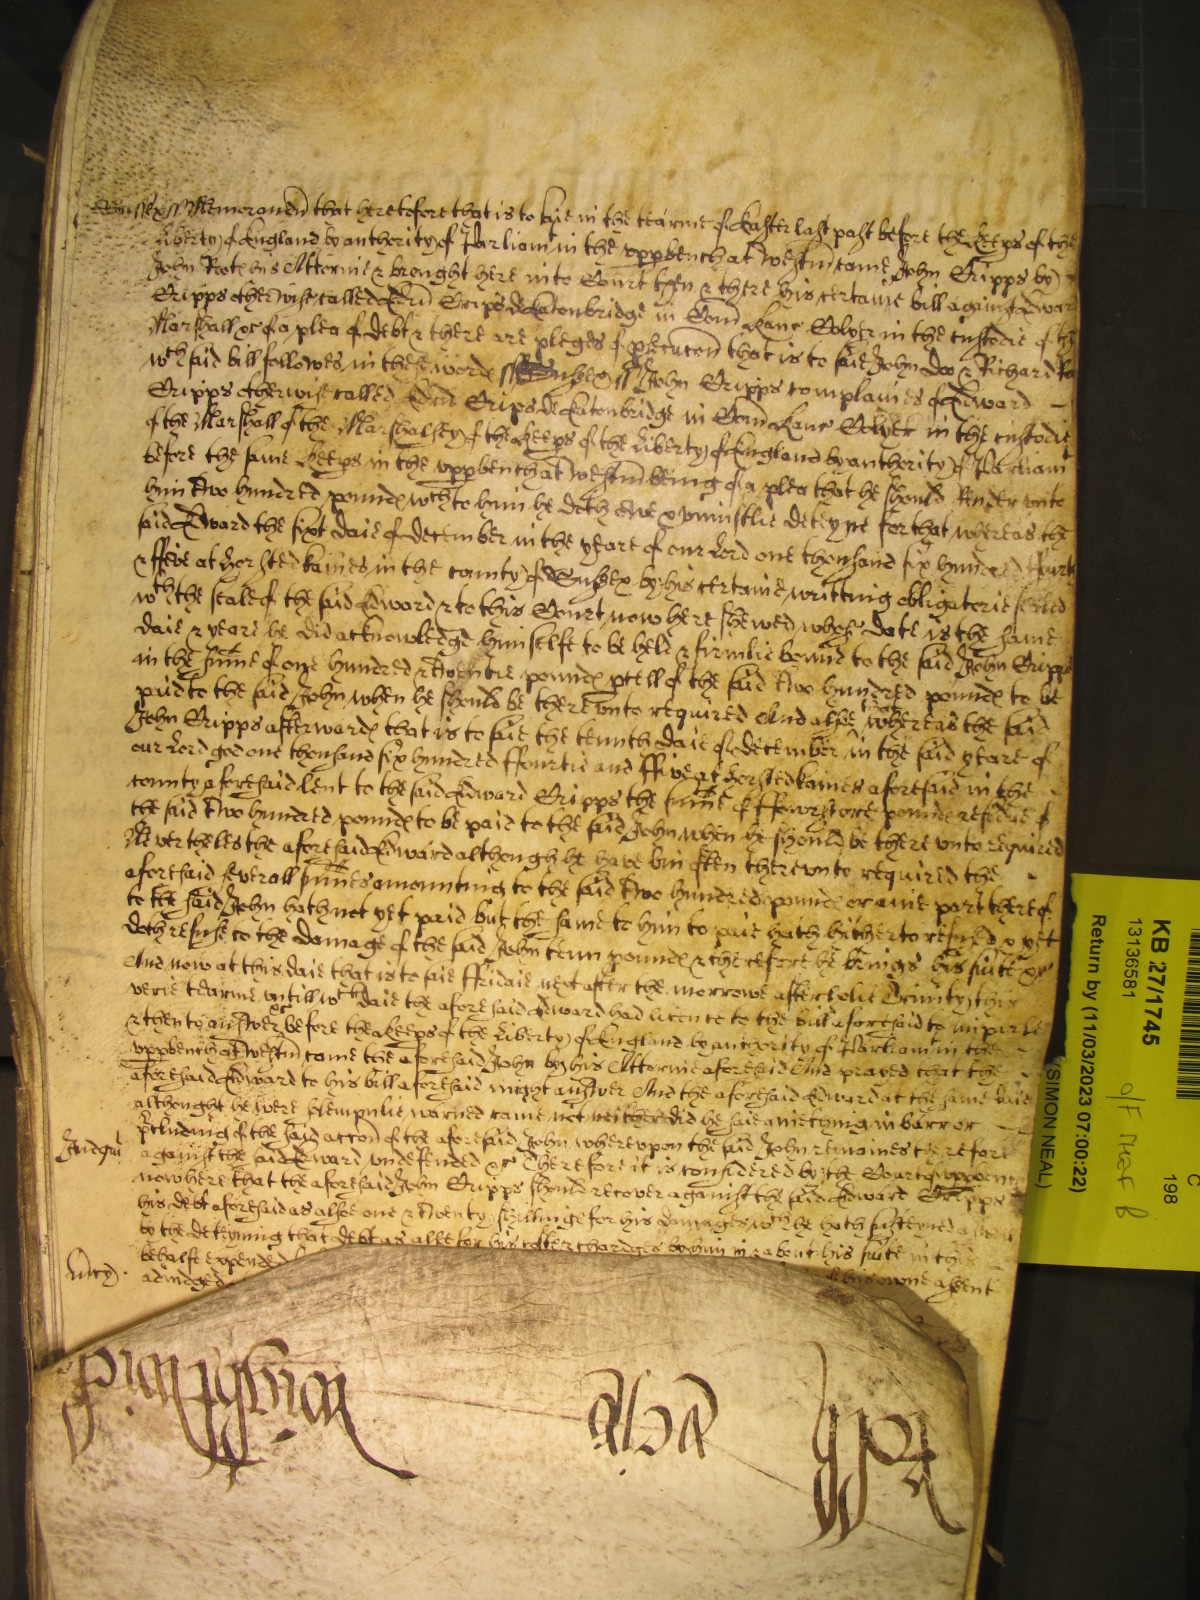 Sussex ss Memorand that heretofore that is to saie in the tearme of Easter last past before the Keeps of the
Liberty of England by authority of Parliamt in the vppbench at Westm came John Cripps by
John Roote his Attornie & brought here into Court then & there his certaine bill against Edward
Cripps otherwise called Edr Crips de Eatonbridge in Com Kanc in the custodie of the
Marshall &c of a plea of debt & there are pleges of psecucon that is to saie John Doo & Richard Ro
wch said bill followes in these words ss Sussex ss John Cripps complaines of Edward
Cripps otherwise called Edr Crips de Eatonbridge in Com Kanc in the custodie
of the Marshall of the Marshalsey of the Keeps of the Liberty of England by authority of Parliamt
before the same Keeps in the vppbench at Westm being of a plea that he should Render vnto
him Two hundred pounds wch to him he doth owe & vniustlie deteyne for that whereas the
said Edward the sixt daie of December in the yeare of our Lord one thousand six hundred ffourtie
& ffive at Horsted Kaines in the county of Sussex by his certaine writting obligatorie sealed
wth the seale of the said Edward & to this Court now here shewed whose date is the same
daie & yeare he did acknowledge himselfe to be held & firmlie bound to the said John Cripps
in the sume of one hundred & Twentie pounds pcell of the said Two hundred pounds to be
paid to the said John when he should be therevnto required And alsoe whereas the said
John Cripps afterwards that is to saie the tennth daie of December in the said yeare of
our Lord god one thousand six hundred ffourtie and ffive at Horsted Kaines aforesaid in the
county aforesaid lent to the said Edward Cripps the sume of ffowrscore pounds residue of
the said Two hundred pounds to be paid to the said John when he should be there vnto required
Neverthelesthe aforesaid Edward although he have bin often therevnto required the
aforesaid severall sumes amounting to the said Two hundred pounds or anie part thereof
to the said John hath not yet paid but the same to him to paie hath hitherto refused & yet
doth refuse to the damage of the said John tenn pounds & therefore he brings his suite &c
And now at this daie that is to saie ffridaie next after the morrowe after holie Trinity this
verie tearme vntill wch daie the aforesaid Edward had licence to the bill aforesaid to imparle
& then to answer &c before the Keeps of the Liberty of England by authority of Parliamt in the
vppbench at Westm came the aforesaid John by his Attornie aforesaid And prayed that the
aforesaid Edward to his bill aforesaid might answer And the aforesaid Edward at the same daie
althought he were solempnlie warned came not neither did he saie anie thing in barr or
Judgmt pcluding of the said accon of the aforesaid John wherevpon the said John remaines therefore
against the said Edward vndefended &c Therefore it is considered by the Court
now here that the aforesaid John Cripps should recover against the said Edward Cripps
his debt aforesaid as alsoe one & Twenty shillings for his damages wch he hath susteyned
by the deteyning that debt as alsoe for his costs & chardges by him in & about his suite in this
behalfe expended
Mcy adiudged his owne assent
KB 27/1745
13136581
Return by (11/03/2023 07:00:22)
(SIMON NEAL)
C
198